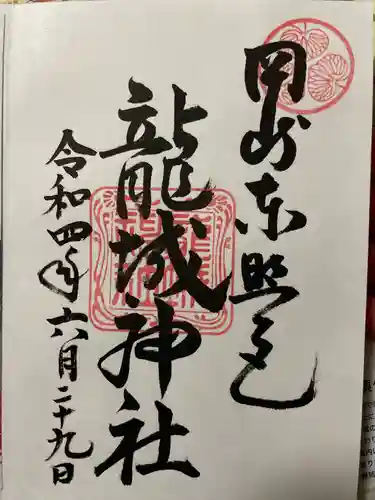 岡崎東照宮
龍城神社
令和四年六月二十九日